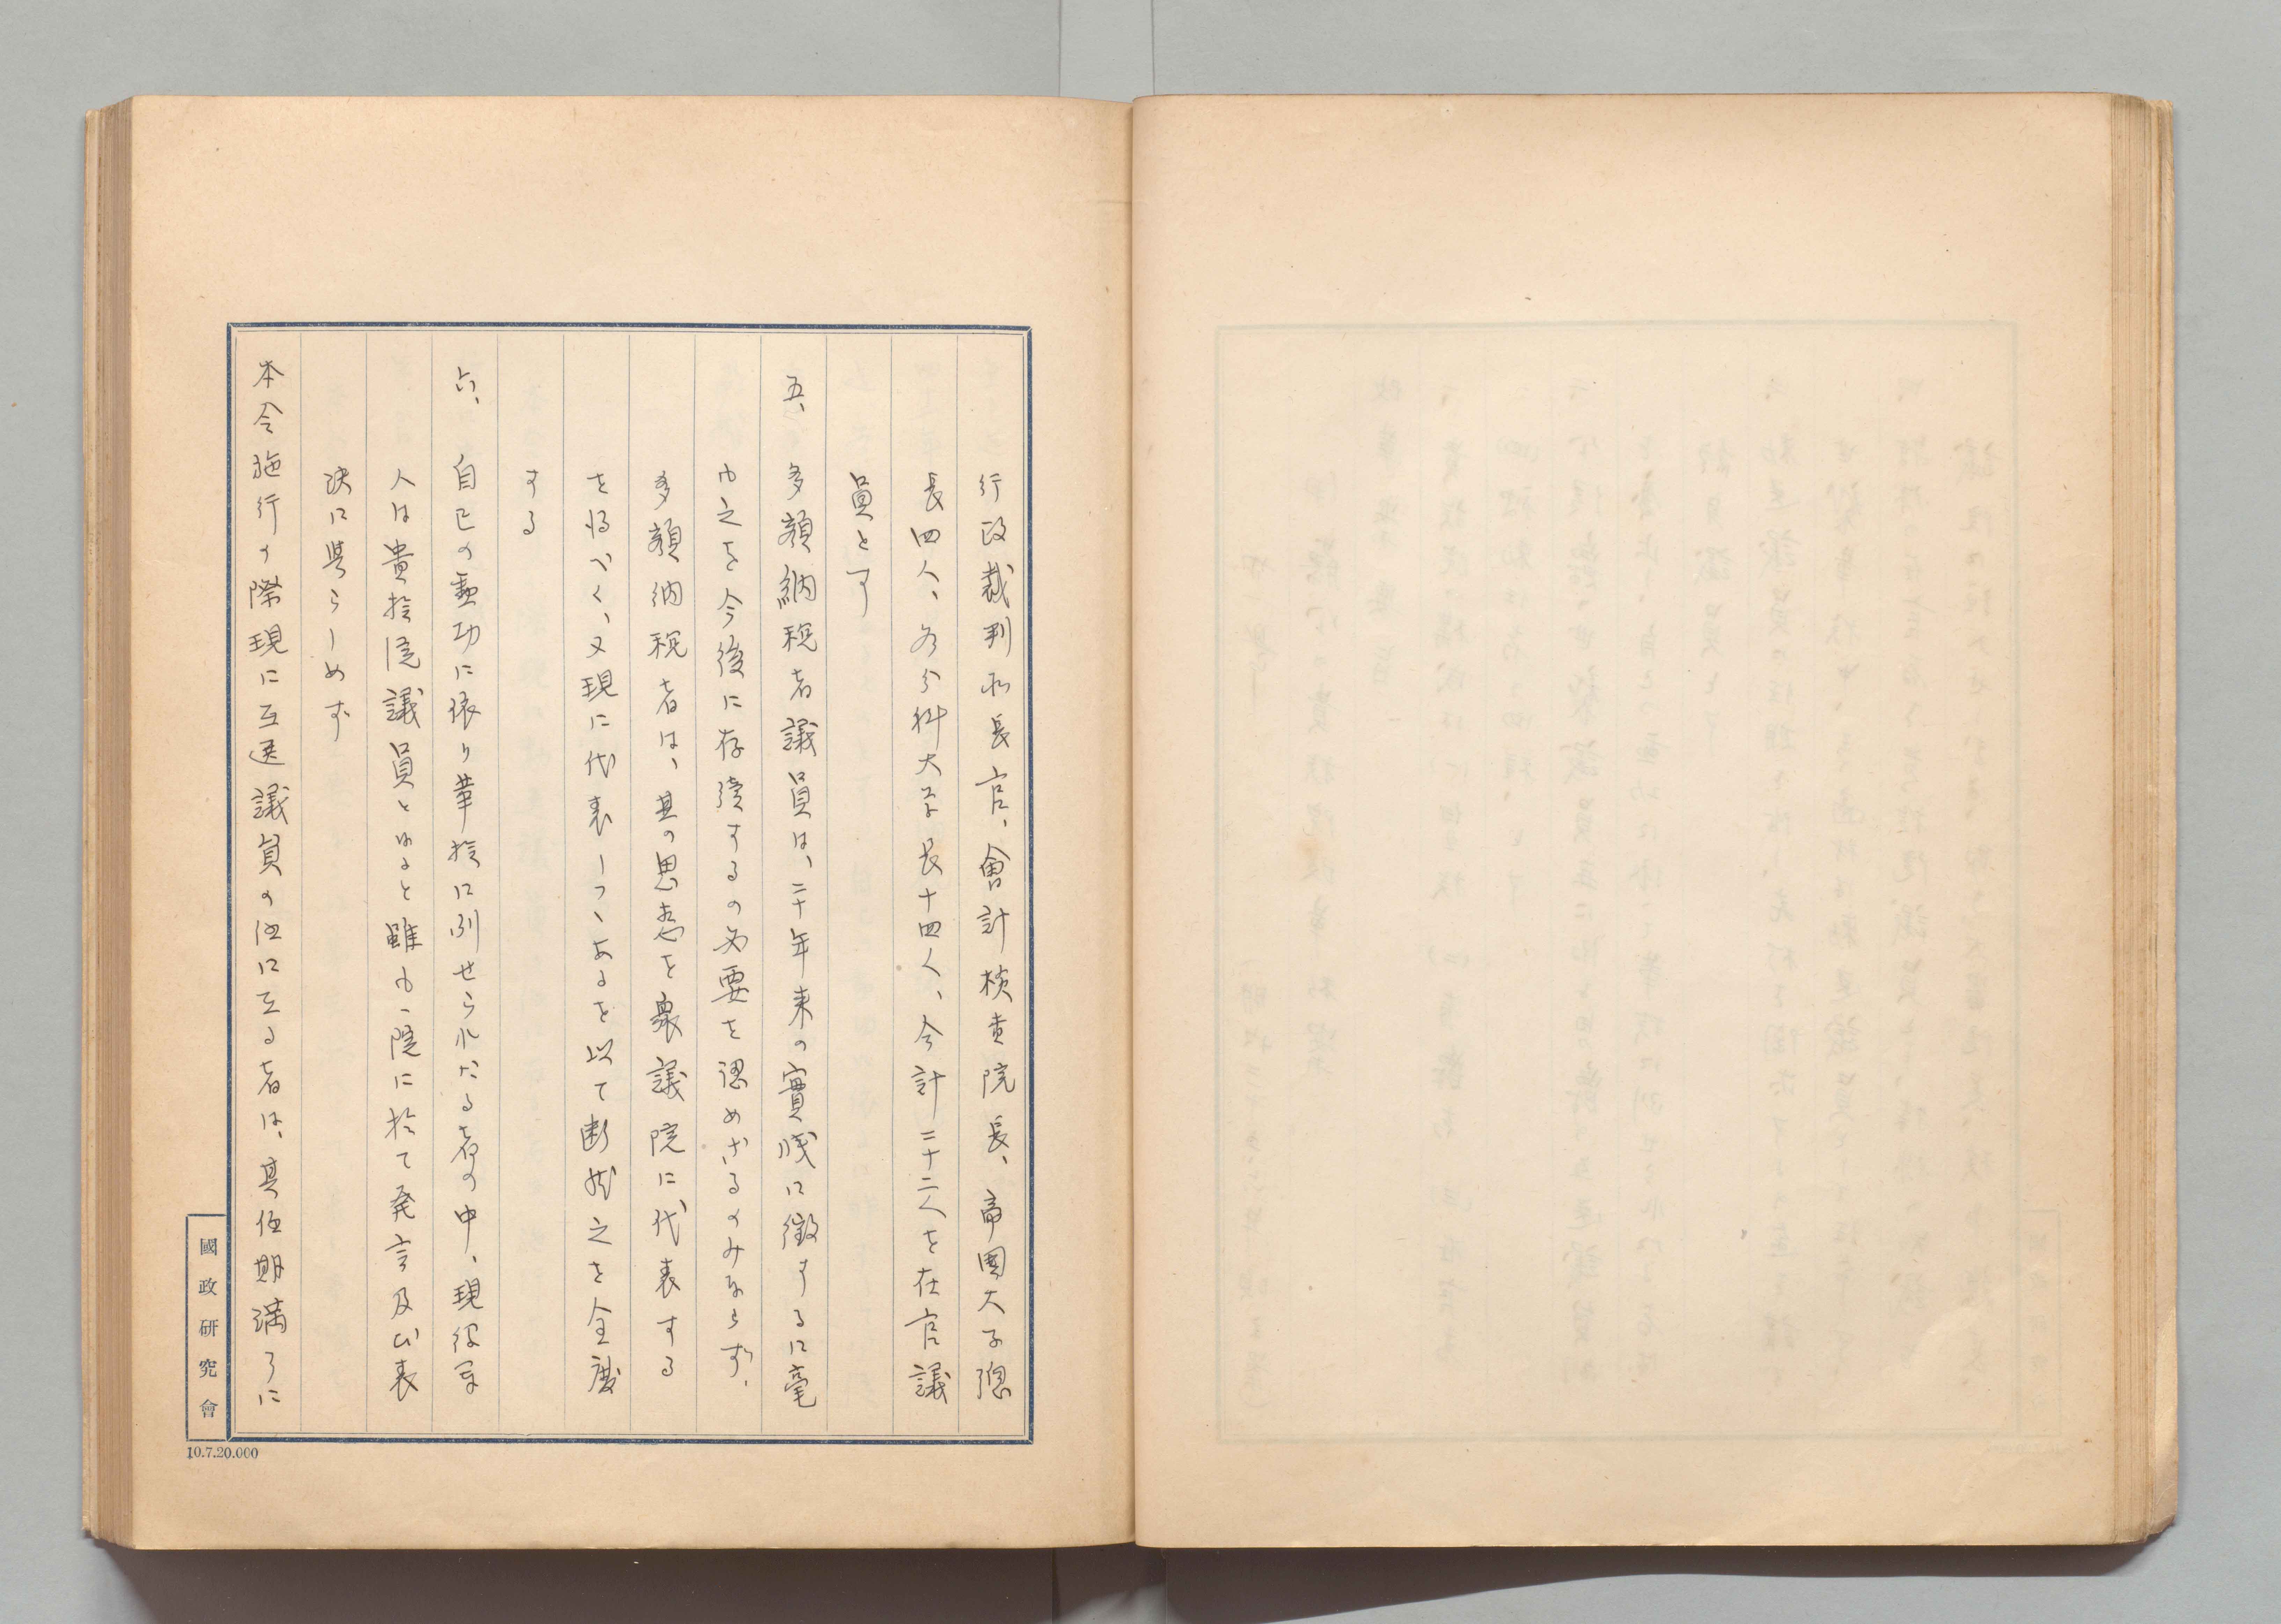 行政裁判所長官、會計検査院長、帝國大学總
長四人、各分科大学長十四人、合計二十二人を在官議
員とす
五、多額納税者議員は、二十年来の實蹟に徴するに毫
も之を今後に存続するの必要を認めざるのみならず、
多額納税者は、其の思想を衆議院に代表する
を得べく、又現に代表しつゝあるを以て断然之を全廃
する
六、自己の勲功に依り華族に列せられたる者の中、現役軍
人は貴族院議員となると雖も、院に於て発言及び表
決に與らしめず
本令施行の際現に互選議員の任に在る者は、其任期満了に
國政研究會
10.7.20.000